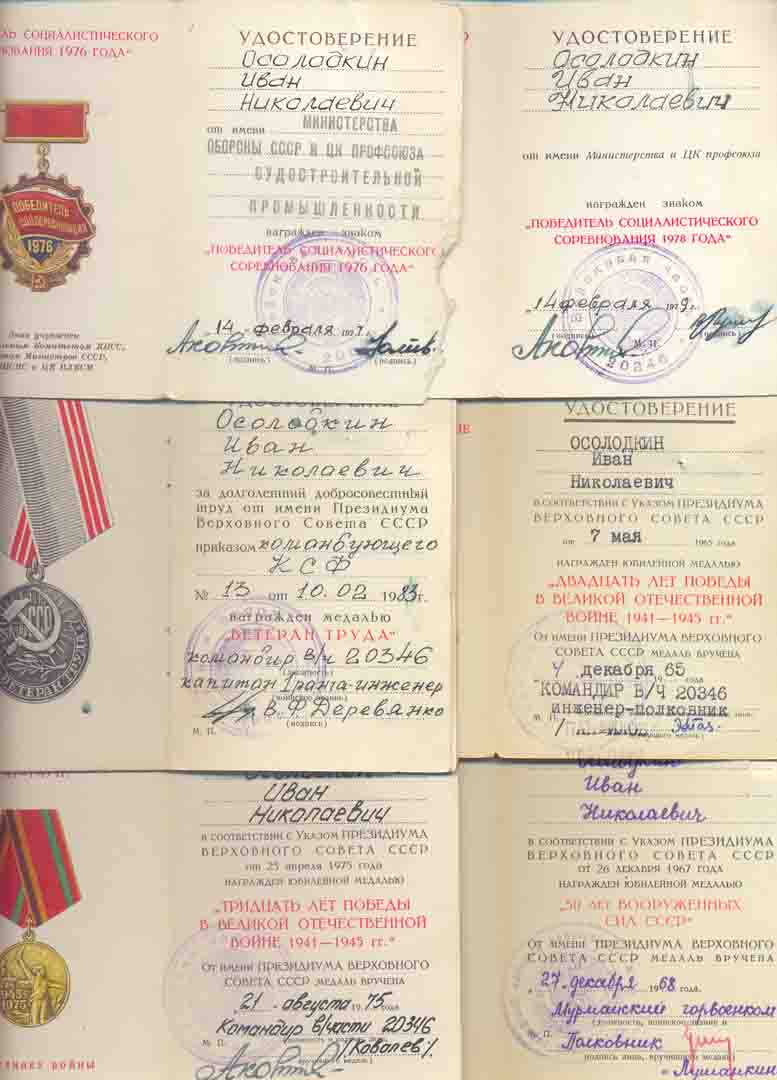 ЛЬ СОЦИАЛИСТИЧЕСКОГО
НОВАНИЯ 1976 ГОДА"
ПОБЕДИТЕЛЬ
СОЦСОРЕВНОВАНИЯ
1976
Знак учрежден
Комитетом КПСС,
Министров СССР,
ВЦСПС и ЦК ВЛКСМ
УДОСТОВЕРЕНИЕ
Осоладкин
Иван
Николаевич
от имени МИНИСТЕРСТВА
ОБОРОНЫ СССР И ЦК ПРОФСОЮЗА
СУДОСТРОИТЕЛЬНОЙ
ПРОМЫШЛЕННОСТИ
награжден знаком
"ПОБЕДИТЕЛЬ СОЦИАЛИСТИЧЕСКОГО
СОРЕВНОВАНИЯ 1976 ГОДА"
"14" февраля 1977 г.
(подпись) М. П. (подпись)
УДОСТОВЕРЕНИЕ
Осоладкин
Иван
Николаевич
от имени Министерства и ЦК профсоюза
награжден знаком
"ПОБЕДИТЕЛЬ СОЦИАЛИСТИЧЕСКОГО
СОРЕВНОВАНИЯ 1978 ГОДА"
"14" февраля 1979 г.
(подпись) М. П. (подпись)
20346
СССР
ВЕТЕРАН ТРУДА
УДОСТОВЕРЕНИЕ
Осолодкин
Иван
Николаевич
за долголетний добросовестный
труд от имени Президиума
Верховного Совета СССР
приказом командующего
КСФ
№ 13 от 10.02 1983 г.
награжден медалью
"ВЕТЕРАН ТРУДА"
командир в/ч 20346
капитан 1 ранга-инженер
В.Ф. Деревянко
(подпись)
М. П.
ИЕ
УДОСТОВЕРЕНИЕ
ОСОЛОДКИН
Иван
Николаевич
В СООТВЕТСТВИИ С УКАЗОМ ПРЕЗИДИУМА
ВЕРХОВНОГО СОВЕТА СССР
от 7 мая 1965 года
НАГРАЖДЕН ЮБИЛЕЙНОЙ МЕДАЛЬЮ
"ДВАДЦАТЬ ЛЕТ ПОБЕДЫ
В ВЕЛИКОЙ ОТЕЧЕСТВЕННОЙ
ВОЙНЕ 1941—1945 гг."
От имени ПРЕЗИДИУМА ВЕРХОВНОГО
СОВЕТА СССР МЕДАЛЬ ВРУЧЕНА
4 декабря 65 года
КОМАНДИР В/Ч 20346
инженер-полковник
М. П.
1975
ТНИКУ ВОЙНЫ
Иван
Николаевич
В СООТВЕТСТВИИ С УКАЗОМ ПРЕЗИДИУМА
ВЕРХОВНОГО СОВЕТА СССР
от 25 апреля 1975 года
НАГРАЖДЕН ЮБИЛЕЙНОЙ МЕДАЛЬЮ
"ТРИДЦАТЬ ЛЕТ ПОБЕДЫ
В ВЕЛИКОЙ ОТЕЧЕСТВЕННОЙ
ВОЙНЕ 1941—1945 гг."
От имени ПРЕЗИДИУМА ВЕРХОВНОГО
СОВЕТА СССР МЕДАЛЬ ВРУЧЕНА
21 августа 1975 года
Командир в/части 20346
М. П. /Ковалев/
Иван
Николаевич
В СООТВЕТСТВИИ С УКАЗОМ ПРЕЗИДИУМА
ВЕРХОВНОГО СОВЕТА СССР
от 26 декабря 1967 года
НАГРАЖДЕН ЮБИЛЕЙНОЙ МЕДАЛЬЮ
"50 ЛЕТ ВООРУЖЕННЫХ
СИЛ СССР"
От имени ПРЕЗИДИУМА ВЕРХОВНОГО
СОВЕТА СССР МЕДАЛЬ ВРУЧЕНА
"27" декабря 1968 года.
горвоенком
М. П. Полковник